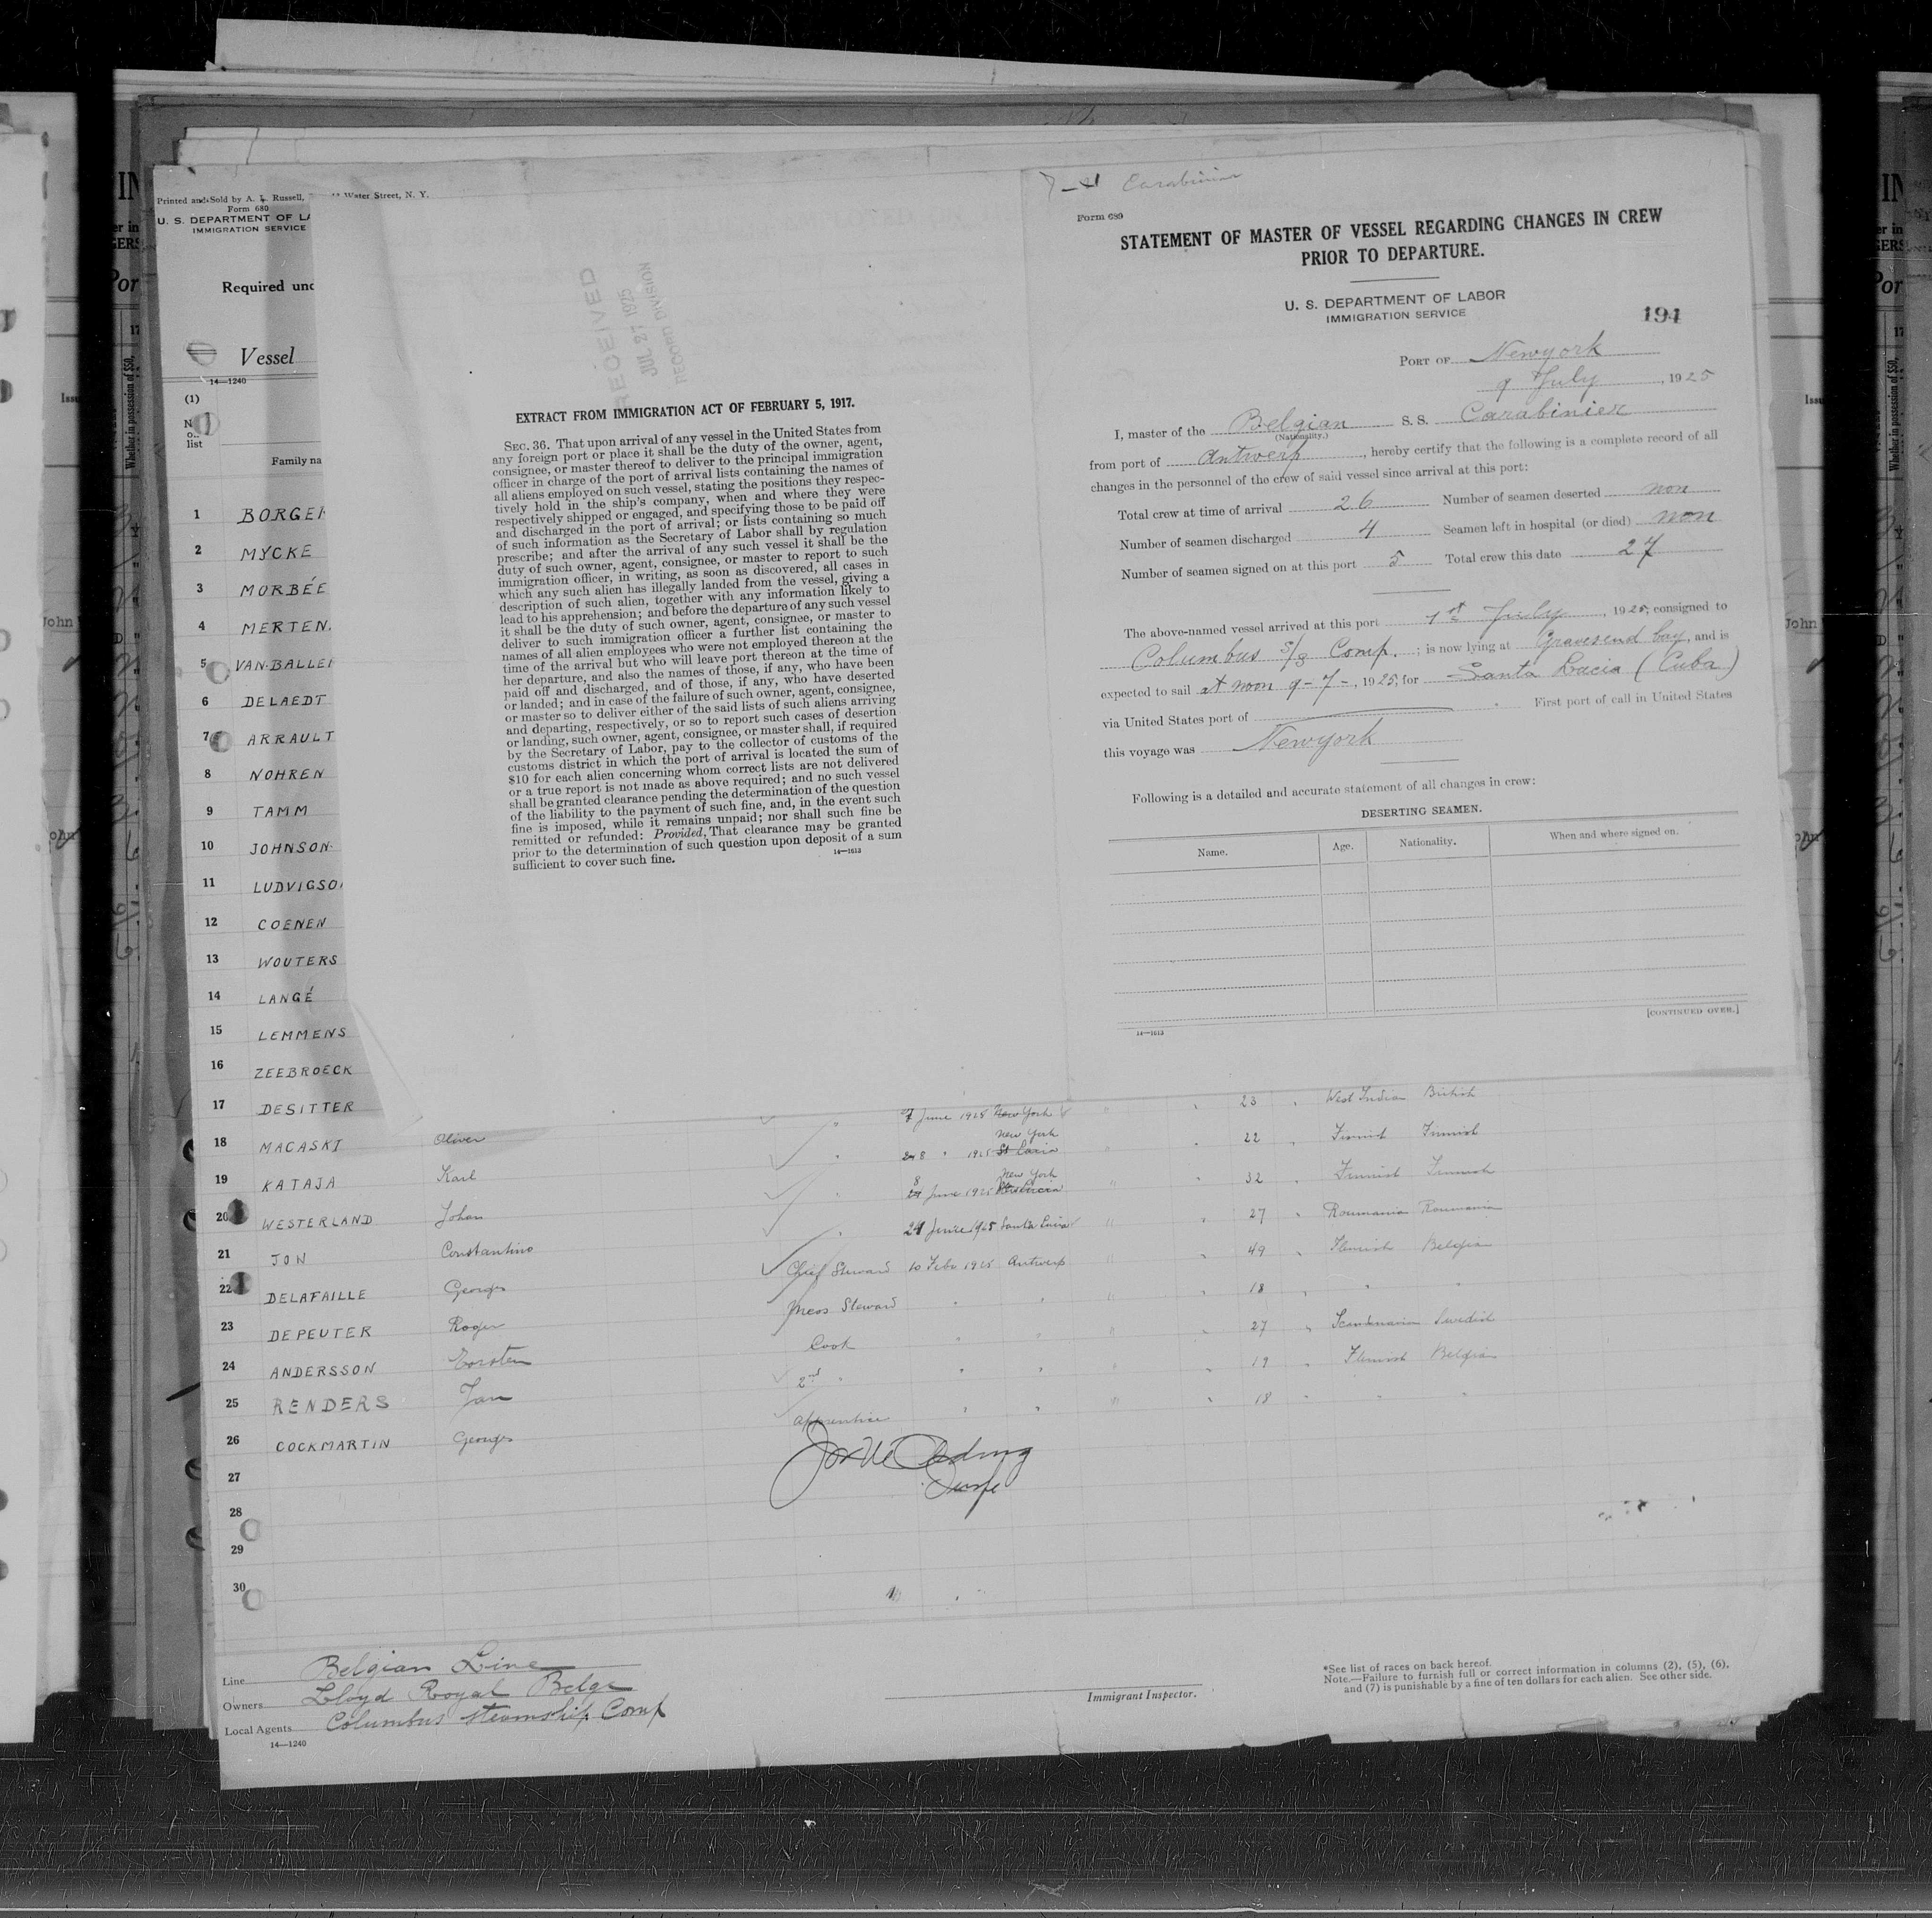 Printed and Sold by A. L. Russell, Water Street, N. Y.
Form 680
U. S. DEPARTMENT OF LA
IMMIGRATION SERVICE
Required und
Vessel
14—1240
(1)
list
Family na
1 BORGER
2 MYCKE
3 MORBÉE
4 MERTEN
5 VAN-BALLE
6 DELAEDT
7 ARRAULT
8 NOHREN
9 TAMM
10 JOHNSON
11 LUDVIGSO
12 COENEN
13 WOUTERS
14 LANGÉ
15 LEMMENS
16 ZEEBROECK
17 DESITTER
18 MACASKI Oliver 7 June 1925 New York " 23 West Indian British
19 KATAJA Karl 8 " 1925 New York St Lucia " 22 Finnish Finnish
20 WESTERLAND Johan 8 24 June 1925 New York " 32 Finnish Finnish
21 JON Constantino 24 June 1925 Santa Lucia " 27 Roumania Roumania
22 DELAFAILLE Georges Chief Steward 10 Febr 1925 Antwerp " 49 Flemish Belgian
23 DEPEUTER Roger Mess Steward " " " 18 " "
24 ANDERSSON Torsten Cook " " " 27 Scandinavian Swedish
25 RENDERS Jan 2nd " " " " 19 Flemish Belgian
26 COCKMARTIN Georges apprentice " " " 18 " "
27
28
29
30
Line Belgian Line
Owners Lloyd Royal Belge
Local Agents Columbus steamship Comp
14—1240
Immigrant Inspector.
*See list of races on back hereof.
Note.—Failure to furnish full or correct information in columns (2), (5), (6),
and (7) is punishable by a fine of ten dollars for each alien. See other side.
RECEIVED
JUL 27 1925
RECORD DIVISION
EXTRACT FROM IMMIGRATION ACT OF FEBRUARY 5, 1917.
SEC. 36. That upon arrival of any vessel in the United States from
any foreign port or place it shall be the duty of the owner, agent,
consignee, or master thereof to deliver to the principal immigration
officer in charge of the port of arrival lists containing the names of
all aliens employed on such vessel, stating the positions they respec-
tively hold in the ship's company, when and where they were
respectively shipped or engaged, and specifying those to be paid off
and discharged in the port of arrival; or lists containing so much
of such information as the Secretary of Labor shall by regulation
prescribe; and after the arrival of any such vessel it shall be the
duty of such owner, agent, consignee, or master to report to such
immigration officer, in writing, as soon as discovered, all cases in
which any such alien has illegally landed from the vessel, giving a
description of such alien, together with any information likely to
lead to his apprehension; and before the departure of any such vessel
it shall be the duty of such owner, agent, consignee, or master to
deliver to such immigration officer a further list containing the
names of all alien employees who were not employed thereon at the
time of the arrival but who will leave port thereon at the time of
her departure, and also the names of those, if any, who have been
paid off and discharged, and of those, if any, who have deserted
or landed; and in case of the failure of such owner, agent, consignee,
or master so to deliver either of the said lists of such aliens arriving
and departing, respectively, or so to report such cases of desertion
or landing, such owner, agent, consignee, or master shall, if required
by the Secretary of Labor, pay to the collector of customs of the
customs district in which the port of arrival is located the sum of
$10 for each alien concerning whom correct lists are not delivered
or a true report is not made as above required; and no such vessel
shall be granted clearance pending the determination of the question
of the liability to the payment of such fine, and, in the event such
fine is imposed, while it remains unpaid; nor shall such fine be
remitted or refunded: Provided, That clearance may be granted
prior to the determination of such question upon deposit of a sum
sufficient to cover such fine.
14—1613
Carabinier
Form 689
STATEMENT OF MASTER OF VESSEL REGARDING CHANGES IN CREW
PRIOR TO DEPARTURE.
U. S. DEPARTMENT OF LABOR
IMMIGRATION SERVICE
194
PORT OF Newyork
9 July, 1925
I, master of the Belgian S. S. Carabinier
(Nationality.)
from port of Antwerp, hereby certify that the following is a complete record of all
changes in the personnel of the crew of said vessel since arrival at this port:
Total crew at time of arrival 26 Number of seamen deserted non
Number of seamen discharged 4 Seamen left in hospital (or died) non
Number of seamen signed on at this port 5 Total crew this date 27
The above-named vessel arrived at this port 1st July, 1925, consigned to
Columbus S/S Comp.; is now lying at Gravesend bay, and is
expected to sail at noon 9-7-, 1925, for Santa Lucia (Cuba)
via United States port of First port of call in United States
this voyage was Newyork
Following is a detailed and accurate statement of all changes in crew:
DESERTING SEAMEN.
Name. Age. Nationality. When and where signed on.
14—1613
[CONTINUED OVER.]